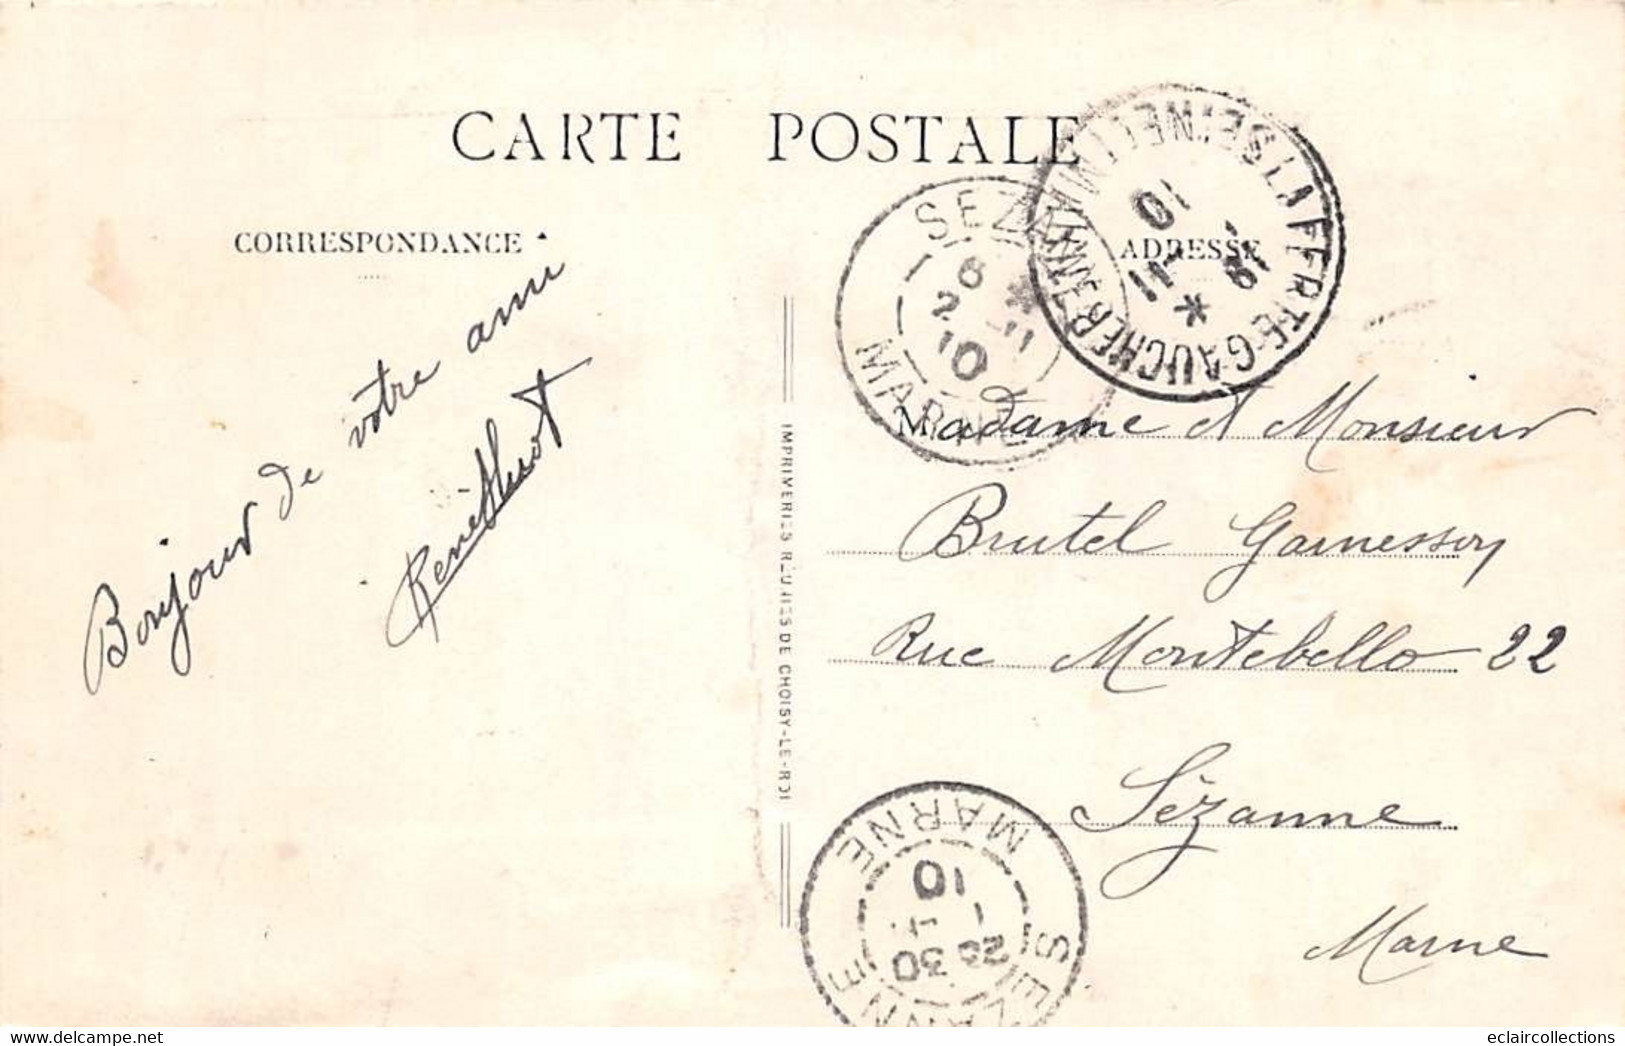 CARTE POSTALE
CORRESPONDANCE
ADRESSE
Bonjour de votre ami
René
IMPRIMERIES RÉUNIES DE CHOISY-LE-ROI
SEZANNE
6
2 -11
10
MARNE
LA FERTE-GAUCHER
SEINE ET MARNE
18
1 -11
10
Madame et Monsieur
Brutel Garnesson
Rue Montebello 22
Sézanne
Marne
SEZANNE
MARNE
10
eclaircollections